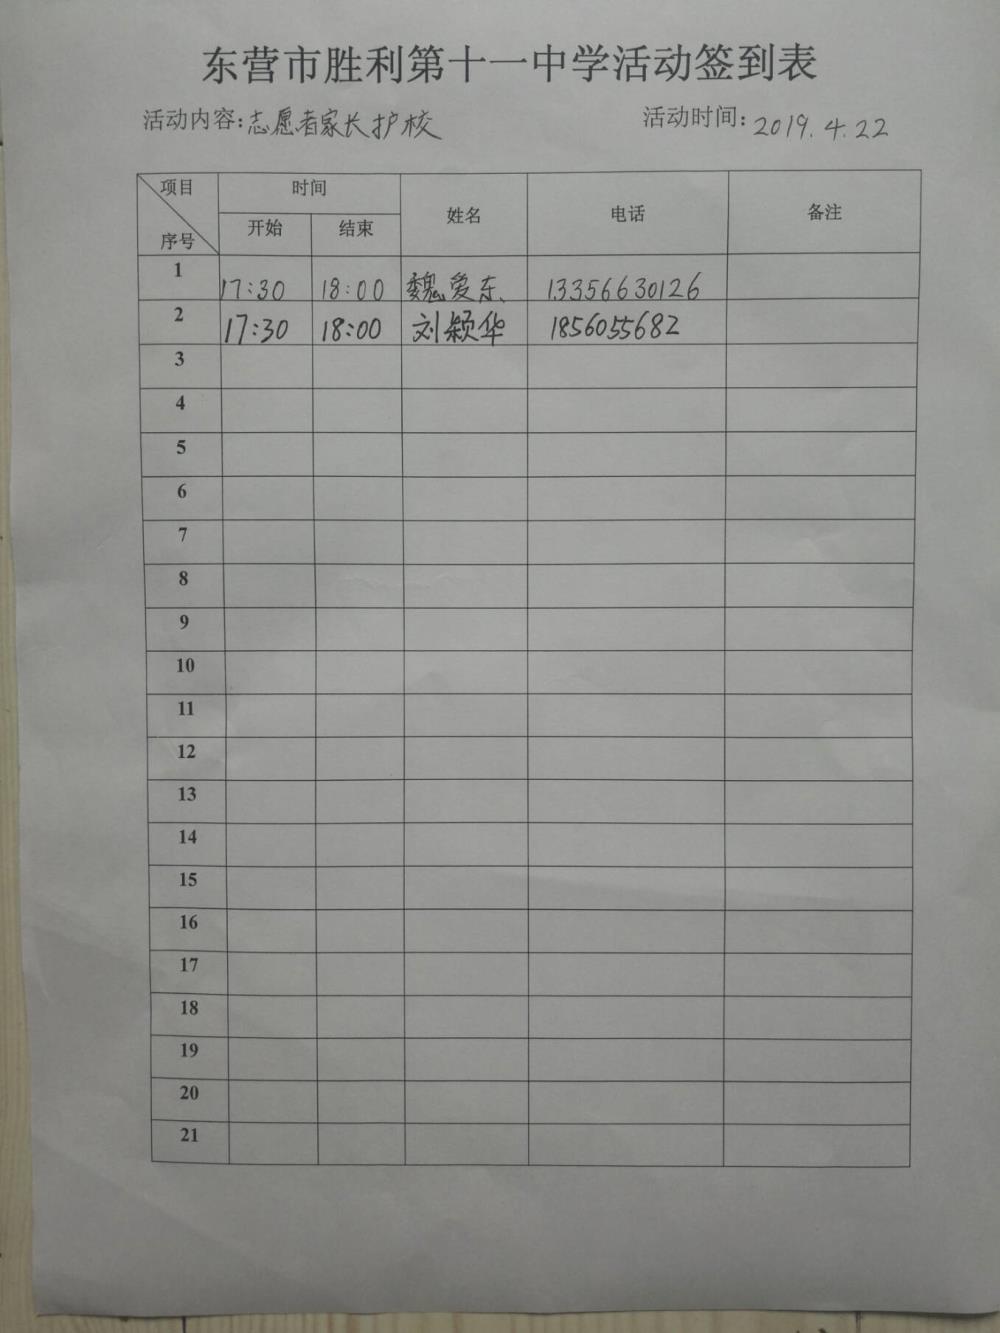 东营市胜利第十一中学活动签到表
活动内容:志愿者家长护校 活动时间:2019.4.22
项目 时间 姓名 电话 备注
序号 开始 结束
1 17:30 18:00 魏爱东、 13356630126
2 17:30 18:00 刘颖华 1856055682
3
4
5
6
7
8
9
10
11
12
13
14
15
16
17
18
19
20
21